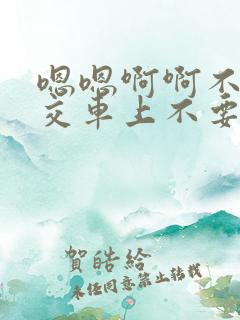 嗯嗯啊啊不
交车上不要
賀皓給
未任同意第止转载